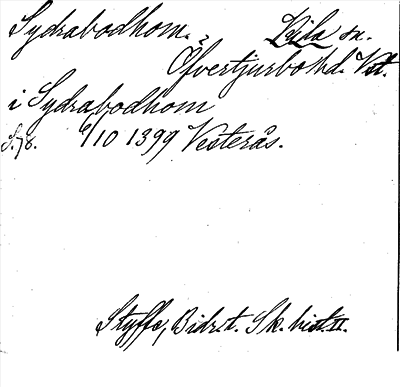 Sydrabodhom. ? Lijla sn.
Öfvertjurbo hd. Vst.
i Sydrabodhom
S. 78. 9/10 1399 Vesterås.
Styffe, Bidr. t. Sk. hist. II.